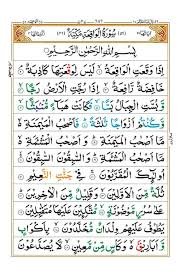 سُوْرَةُ الْوَاقِعَةِ مَكِّيَّةٌ
بِسْمِ اللّٰهِ الرَّحْمٰنِ الرَّحِيْمِ
اِذَا وَقَعَتِ الْوَاقِعَةُ ۙ لَيْسَ لِوَقْعَتِهَا كَاذِبَةٌ ۘ
خَافِضَةٌ رَّافِعَةٌ ۙ اِذَا رُجَّتِ الْاَرْضُ رَجًّا ۙ
وَّبُسَّتِ الْجِبَالُ بَسًّا ۙ فَكَانَتْ هَبَآءً مُّنْۢبَثًّا ۙ
وَّكُنْتُمْ اَزْوَاجًا ثَلٰثَةً ؕ فَاَصْحٰبُ الْمَيْمَنَةِ ۙ
مَاۤ اَصْحٰبُ الْمَيْمَنَةِ ؕ وَاَصْحٰبُ الْمَشْـَٔمَةِ ۙ
مَاۤ اَصْحٰبُ الْمَشْـَٔمَةِ ؕ وَالسّٰبِقُوْنَ السّٰبِقُوْنَ ۙ
اُولٰٓئِكَ الْمُقَرَّبُوْنَ ۚ فِيْ جَنّٰتِ النَّعِيْمِ
ثُلَّةٌ مِّنَ الْاَوَّلِيْنَ ۙ وَقَلِيْلٌ مِّنَ الْاٰخِرِيْنَ ؕ
عَلٰى سُرُرٍ مَّوْضُوْنَةٍ ۙ مُّتَّكِـِٕيْنَ عَلَيْهَا مُتَقٰبِلِيْنَ
يَطُوْفُ عَلَيْهِمْ وِلْدَانٌ مُّخَلَّدُوْنَ ۙ بِاَكْوَابٍ
وَّاَبَارِيْقَ ۙ وَكَاْسٍ مِّنْ مَّعِيْنٍ ۙ لَّا يُصَدَّعُوْنَ